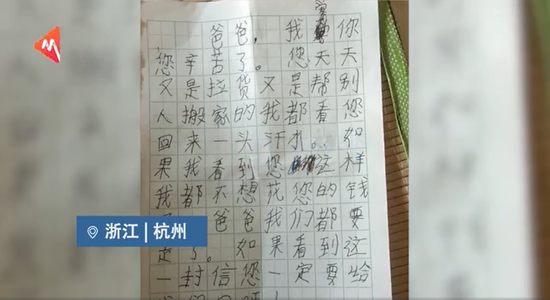 M
爸爸，我你
您辛苦了。您天天
又是拉货又是帮别
人搬家的我都看您
回来一头汗 。如
果我看到您这样
我都不想花您的钱
爸爸我们都要
走了。如果看到这
一封信您一定要给
浙江 | 杭州